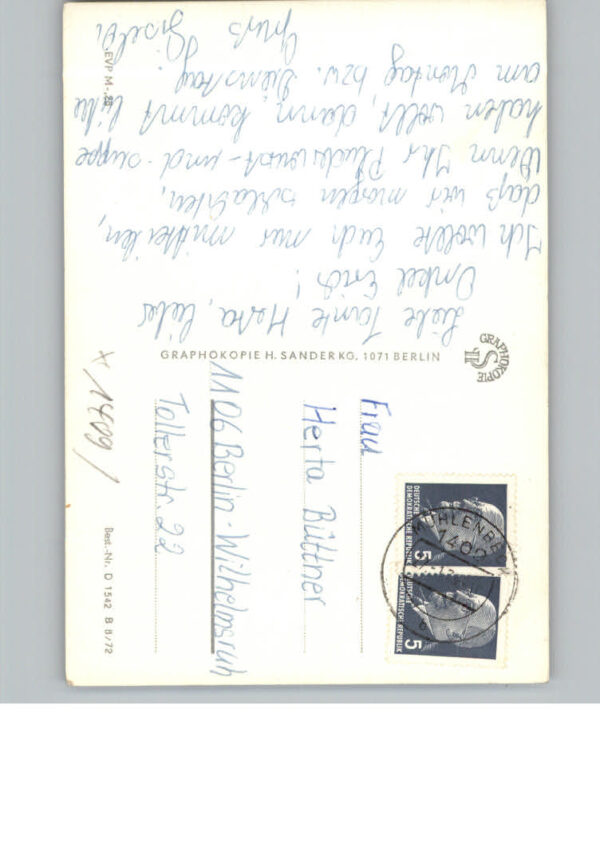 Liebe Tante Herta, lieber
Onkel Erich!
Ich wollte Euch nur mitteilen,
daß wir morgen schlachten,
Wenn Ihr Pluderwurst- und -suppe
haben wollt, dann kommt bitte
am Montag bzw. Dienstag.
Gruß
EVP M -,20
GRAPHOKOPIE H. SANDER KG, 1071 BERLIN
GRAPHOKOPIE
HS
Frau
Herta Büttner
1106 Berlin-Wilhelmsruh
Tollerstr. 22
Best.-Nr. D 1542 B 8/72
DEUTSCHE
DEMOKRATISCHE REPUBLIK
5
DEUTSCHE
DEMOKRATISCHE REPUBLIK
5